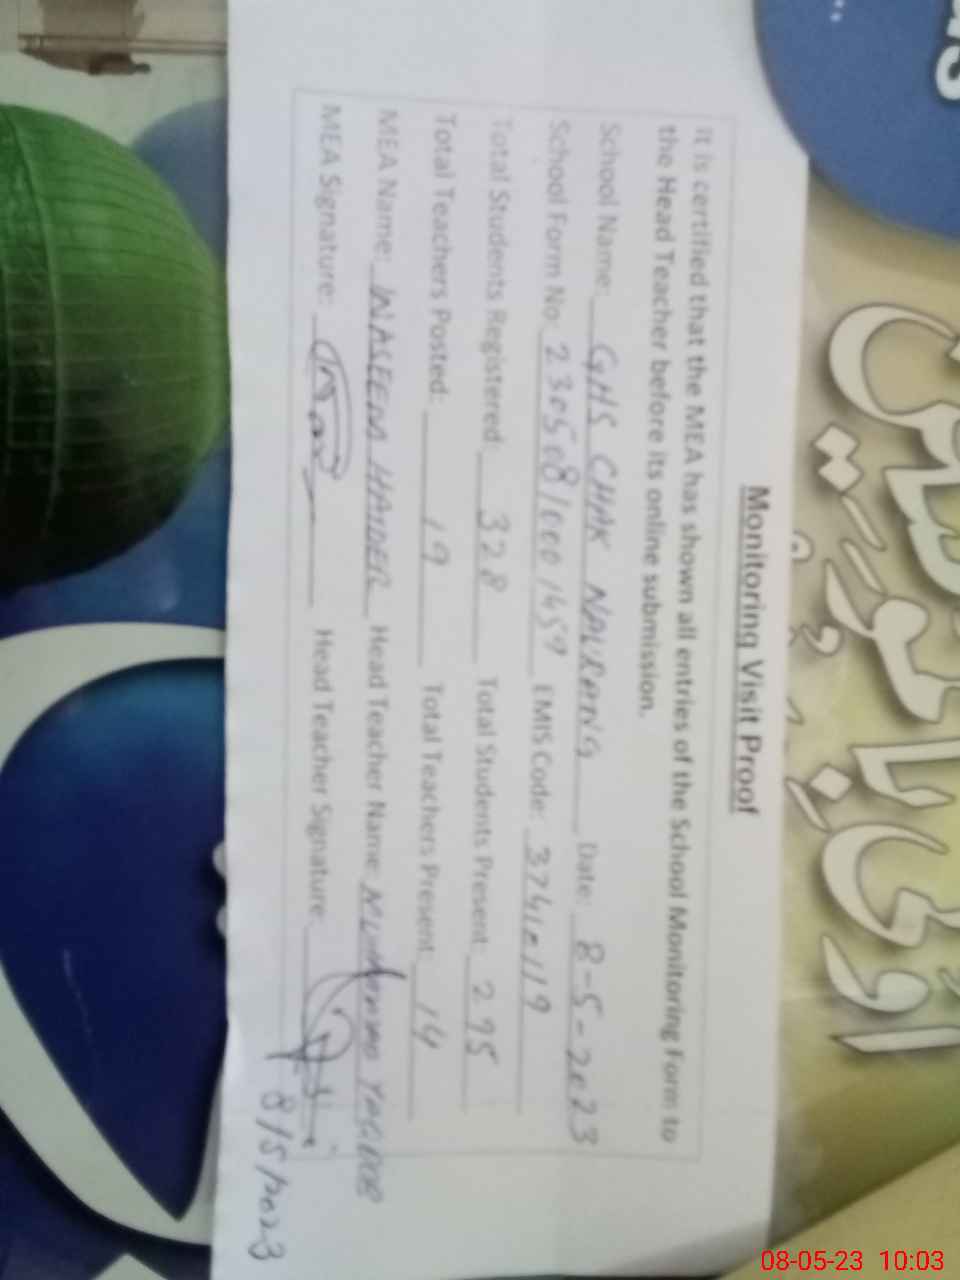 Monitoring Visit Proof
It is certified that the MEA has shown all entries of the School Monitoring Form to
the Head Teacher before its online submission.
School Name: GHS CHAK NAURANG Date: 8-5-2023
School Form No: 23050810001459 EMIS Code: 37410119
Total Students Registered: 328 Total Students Present: 295
Total Teachers Posted: 19 Total Teachers Present: 14
MEA Name: WASEEM HAIDER Head Teacher Name: MUHAMMAD
MEA Signature: Head Teacher Signature:
8/5/2023
08-05-23 10:03